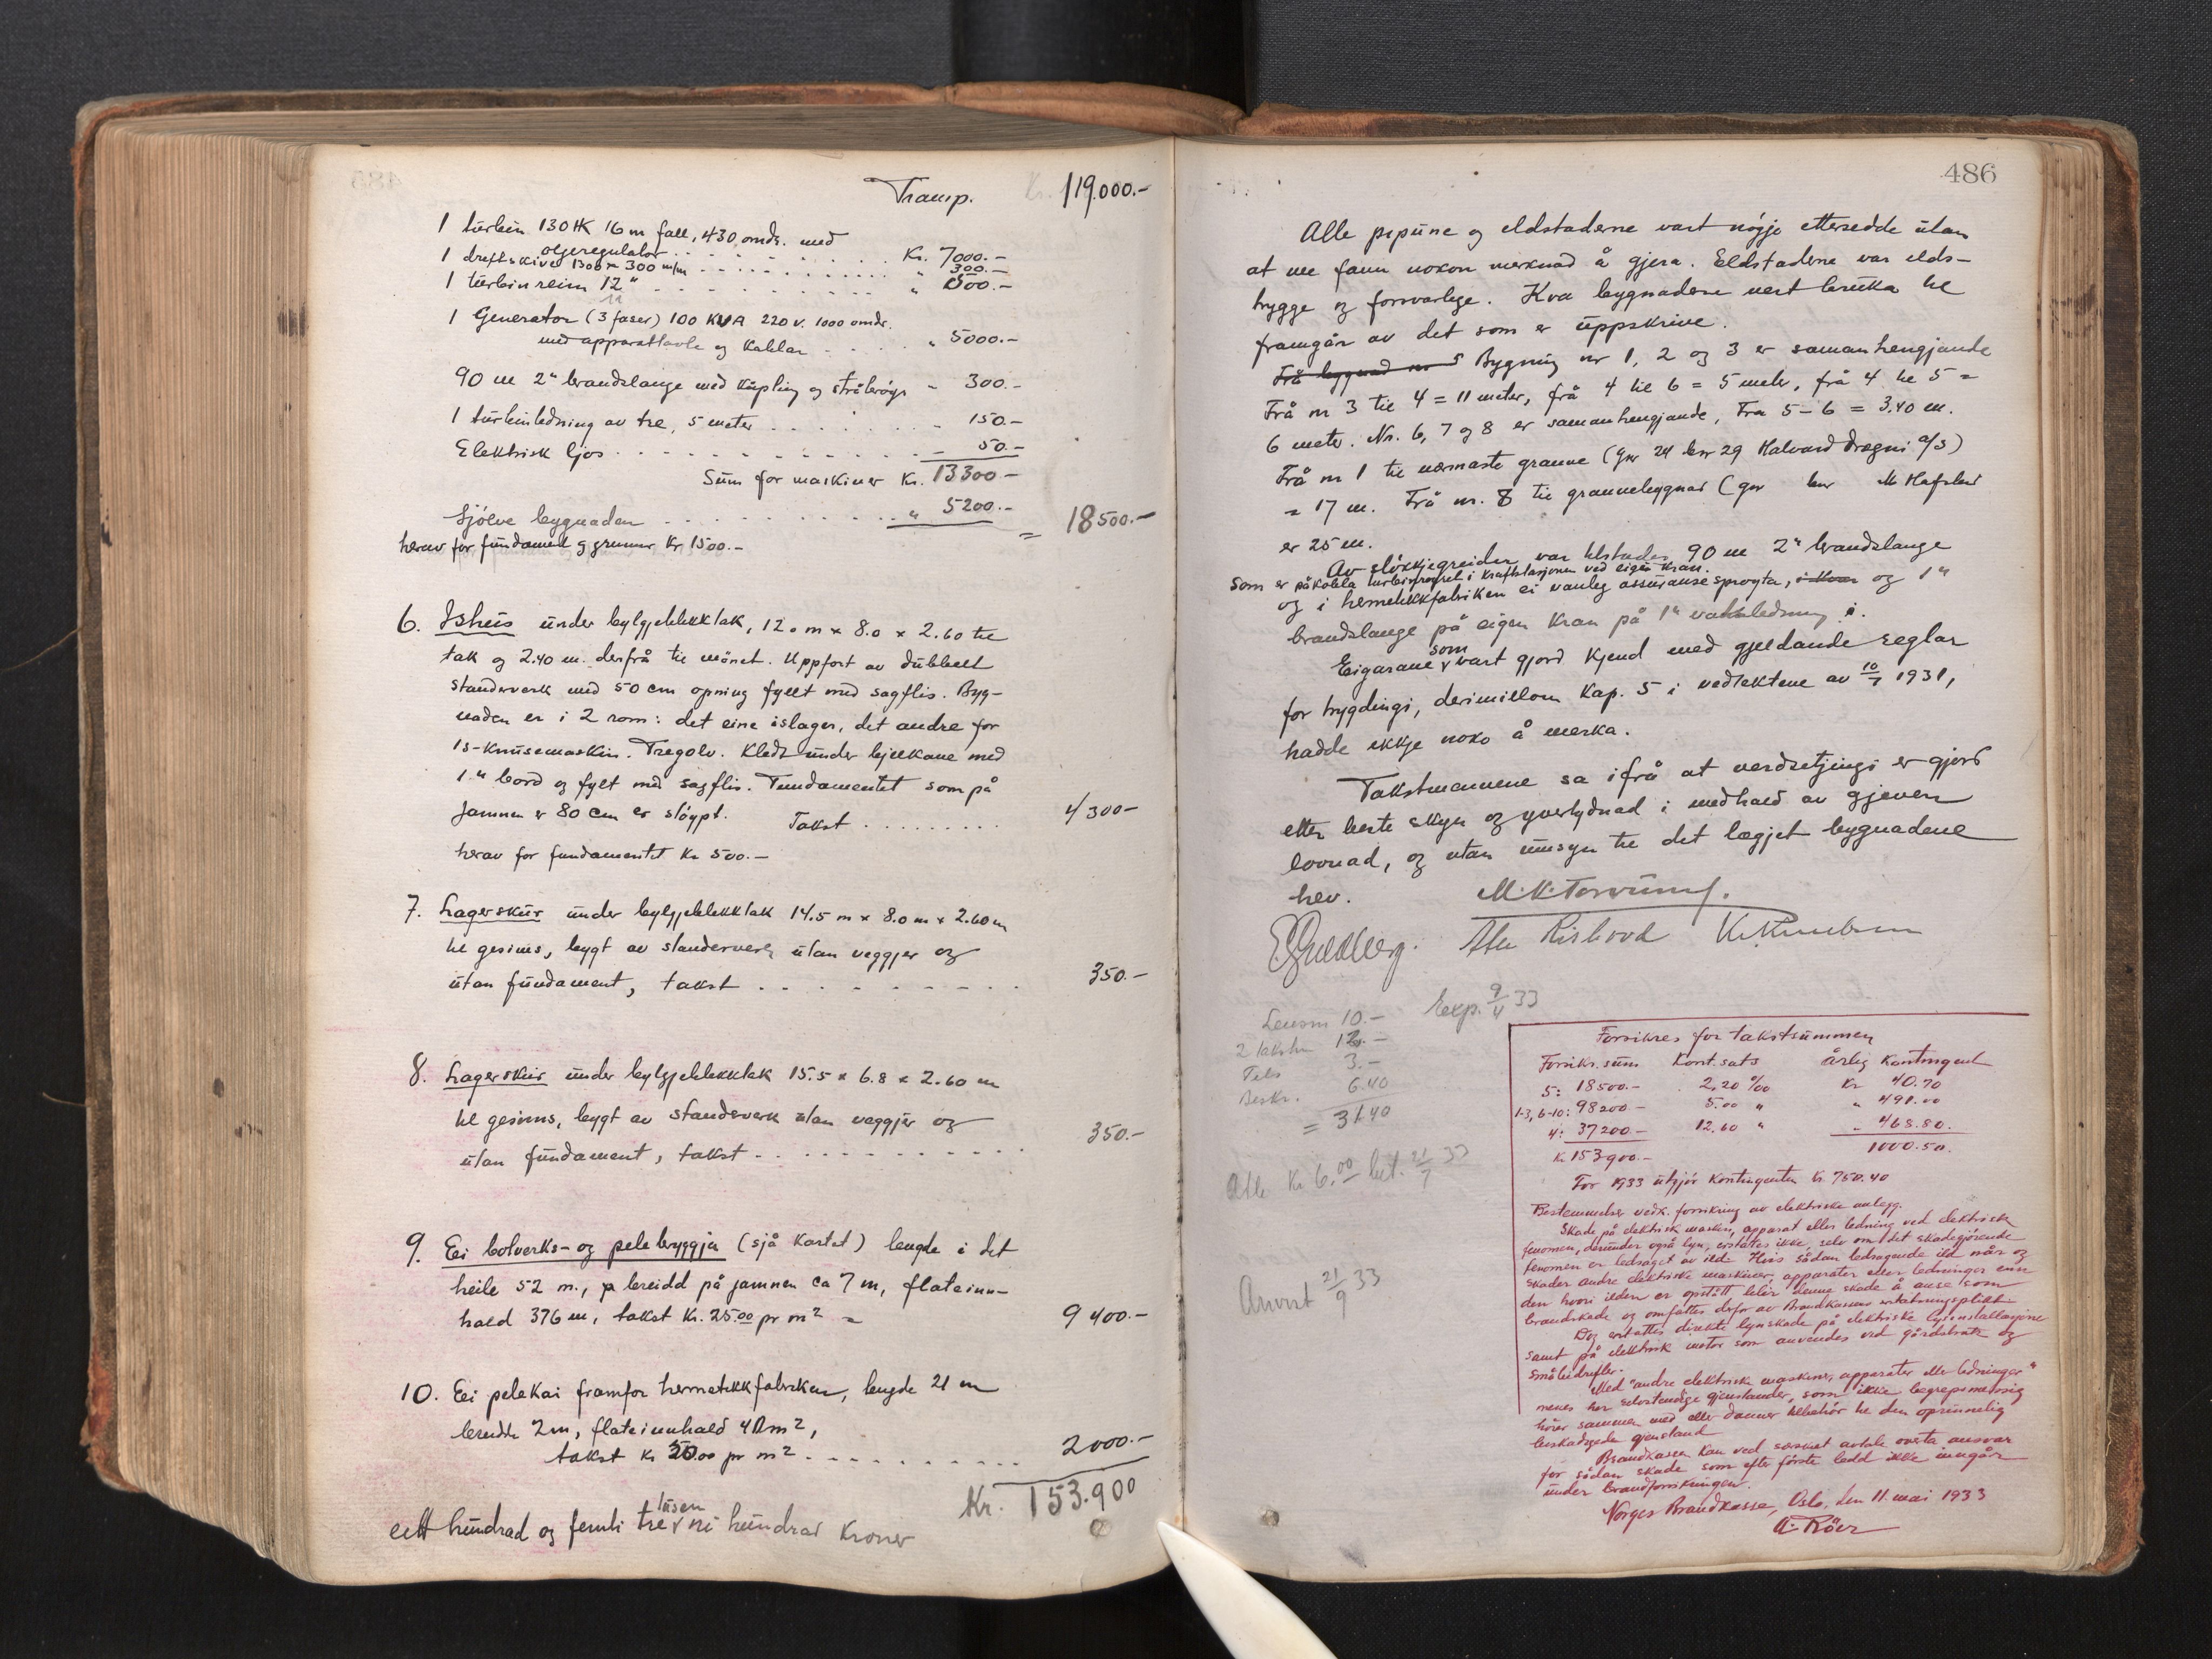 Transp. Kr. 119.000.-
1 turbin 130 HK 16 m fall, 430 omdr. med
oljeregulator . . . . . . . . . Kr. 7000.-
1 dreftskive 1300 x 300 m/m . . . . . . . . . . " 300.-
1 turbinreim 12" . . . . . . . . . . " 500.-
1 Generator (3 faser) 100 KVA 220 v. 1000 omdr.
med apparattavle og Kablar . . . . . " 5000.-
90 m 2" brandslange med kúpling og strålerøyr - 300.-
1 turbinledning av tre, 5 meter . . . . . . . - 150.-
Elektrisk ljos . . . . . . . . . . . . - 50.-
Sùm for maskiner Kr. 13300-
Sjølve bygnaden . . . . . . . . . . . " 5200.- = 18500.-
herav for fùndament og grunnur Kr 1500.-
6. Ishùs ùnder bylgjeblekktak, 12.0 m x 8.0 x 2.60 til
tak og 2.40 m. derfrå til mönet. Uppfört av dùbbelt
standerverk med 50 cm opning fyllt med sagflis. Byg-
naden er i 2 rom: det eine islager, det andre for
is-knùsemaskin. Tregolv. Kledt ùnder bjelkane med
1" bord og fylt med sagflis. Fundamentet som på
jamnen er 80 cm er støypt. Takst . . . . . . . . . 4300-
herav for fundamentet Kr 500.-
7. Lagerskùr ùnder bylgjeblekktak 14.5 m x 8.0 m x 2.60 m
til gesims, bygt av standerverk ùtan veggjer og
ùtan fùndament, takst . . . . . . . . . . 350.-
8. Lagerskùr ùnder bylgjeblekktak 15.5 x 6.8 x 2.60 m
til gesims, bygt av standerverk ùtan veggjer og
ùtan fùndament, takst . . . . . . . . . . . 350.-
9. Ei bolverks- og pelebryggja (sjå Kartet) lengde i det
heile 52 m., breidd på jamnen ca 7 m, flateinn-
hald 376 m, takst Kr. 25.00 pr m² = 9400.-
10. Ei pelekai framfor hermetikkfabriken, lengde 21 m
breidde 2 m, flateinnhald 4 m²,
takst Kr 50.00 pr m² . . . . . . . . . . 2000.-
Kr. 153.900
eitt hùndrad og femti tre tùsen ni hùndrad Kroner
486
Alle pipùne og eldstaderne vart nöyje ettersedde ùtan
at me fann nokon merknad å gjera. Eldstaderne var elds-
trygge og forsvarlege. Kva bygnadene vert brùka til
framgår av det som er ùppskrive.
Frå bygnad nr 5 Bygning nr 1, 2 og 3 er samanhengjande
Frå nr 3 til 4 = 11 meter, frå 4 til 6 = 5 meter, frå 4 til 5 =
6 meter. Nr. 6, 7 og 8 er samanhengjande, Fra 5-6 = 3.40 m.
Frå nr 1 til nærmaste granne (gnr 24 bnr 29 Halvard Drægni a/s)
= 17 m. Frå nr. 8 til grannebygnad (gnr bnr M Hafslad
er 25 m.
Av slökkjegreider var tilstades 90 m 2" brandslange
som er påkobla turbinrøyret i kraftstasjonen ved eigen Kran.
og i hermetikkfabriken ei vanleg assùranse sprøyta, og 1"
brandslange på eigen Kran på 1" vassledning.
Eigarane som vart gjord kjend med gjeldande reglar
for trygdingi, derimillom Kap. 5 i vedtektene av 10/7 1931,
hadde ikkje noko å merka.
Takstmennene sa ifrå at verdsetjingi er gjord
etter beste skyn og yvertydnad i medhald av gjeven
lovnad, og utan ùmsyn til det lægjet bygnadene
hev.
M. K. Torvùnd.
Lensm 10.- Exp. 9/4 33
2 takstm 12.-
Tels 3.-
Beskr. 6.40
= 31.40
Atte Kr 6.00 bet. 21/7 33
Anvist 21/9 33
Forsikres for takstsùmmen
Forsikr.sùm Kont.sats Årlig Kontingent
5: 18500.- 2,20 ‰ Kr 40.70
1-3, 6-10: 98200- 5.00 " " 491.00
4: 37200.- 12,60 " - 468.80.
Kr 153900.- 1000.50.
For 1933 ùtgjör Kontingenten Kr. 750.40
Bestemmelser vedr. forsikring av elektriske anlegg.
Skade på elektrisk maskin, apparat eller ledning ved elektrisk
fenomen, derùnder også lyn, erstattes ikke, selv om det skadegjörende
fenomen er ledsaget av ild. Hvis sådan ledsagende ild når og
skader andre elektriske maskiner, apparater eller ledninger enn
den hvori ilden er opstått blir denne skade å anse som
brandskade og omfattes derfor av Brandkassens erstatningsplikt.
Dog erstattes direkte lynskade på elektriske lysinstallasjoner
samt på elektrisk motor som anvendes ved gårdsbruk og
småbedrifter.
Med "andre elektriske maskiner, apparater eller ledninger"
menes her selvstendige gjenstander, som ikke begrepsmessig
hörer sammen med eller danner tilbehör til den oprinnelig
beskadigede gjenstand
Brandkassen Kan ved særskilt avtale overta ansvar
for sådan skade som efter förste ledd ikke inngår
ùnder brandforsikringen.
Norges Brandkasse, Oslo, den 11 mai 1933